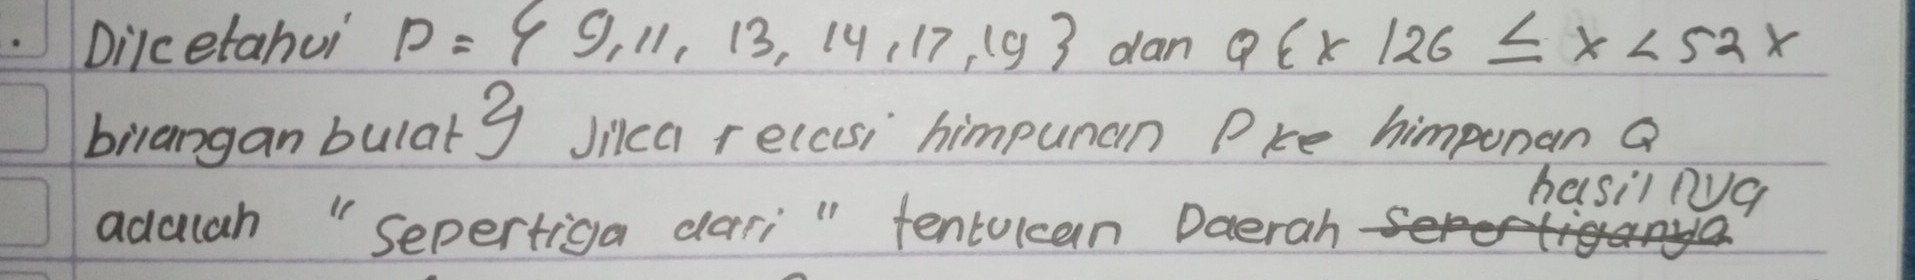 . Diketahui P = { 9, 11, 13, 14, 17, 19 } dan Q { x | 26 ≤ x < 52 x
bilangan bulat } Jika relasi himpunan P ke himpunan Q
hasil nya
adalah " sepertiga dari " tentukan Daerah sepertiganya